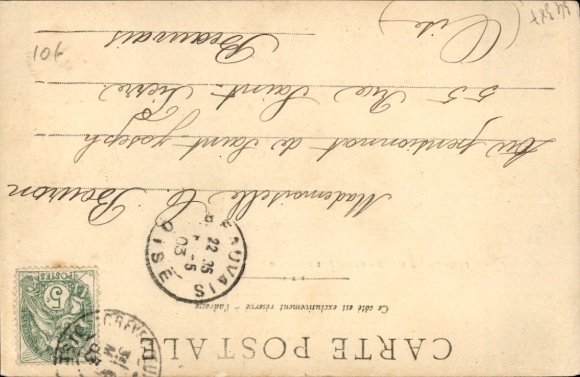 CARTE POSTALE
Ce côté est exclusivement réservé à l'adresse
BEAUVAIS
22 35
5
03
OISE
5c
POSTES
Mademoiselle C Beuron
Au pensionnat de Saint Joseph
55 Rue Saint Pierre
Beauvais
(Oise)
106